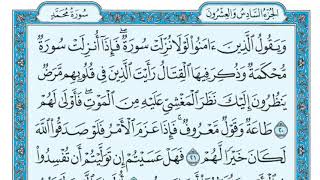 الجزء السادس والعشرون سورة محمد
وَيَقُولُ الَّذِينَ ءَامَنُوا لَوْلَا نُزِّلَتْ سُورَةٌ فَإِذَا أُنزِلَتْ سُورَةٌ
مُّحْكَمَةٌ وَذُكِرَ فِيهَا الْقِتَالُ رَأَيْتَ الَّذِينَ فِي قُلُوبِهِم مَّرَضٌ
يَنظُرُونَ إِلَيْكَ نَظَرَ الْمَغْشِيِّ عَلَيْهِ مِنَ الْمَوْتِ فَأَوْلَى لَهُمْ ٢٠
طَاعَةٌ وَقَوْلٌ مَّعْرُوفٌ فَإِذَا عَزَمَ الْأَمْرُ فَلَوْ صَدَقُوا اللَّهَ
لَكَانَ خَيْرًا لَّهُمْ ٢١ فَهَلْ عَسَيْتُمْ إِن تَوَلَّيْتُمْ أَن تُفْسِدُوا